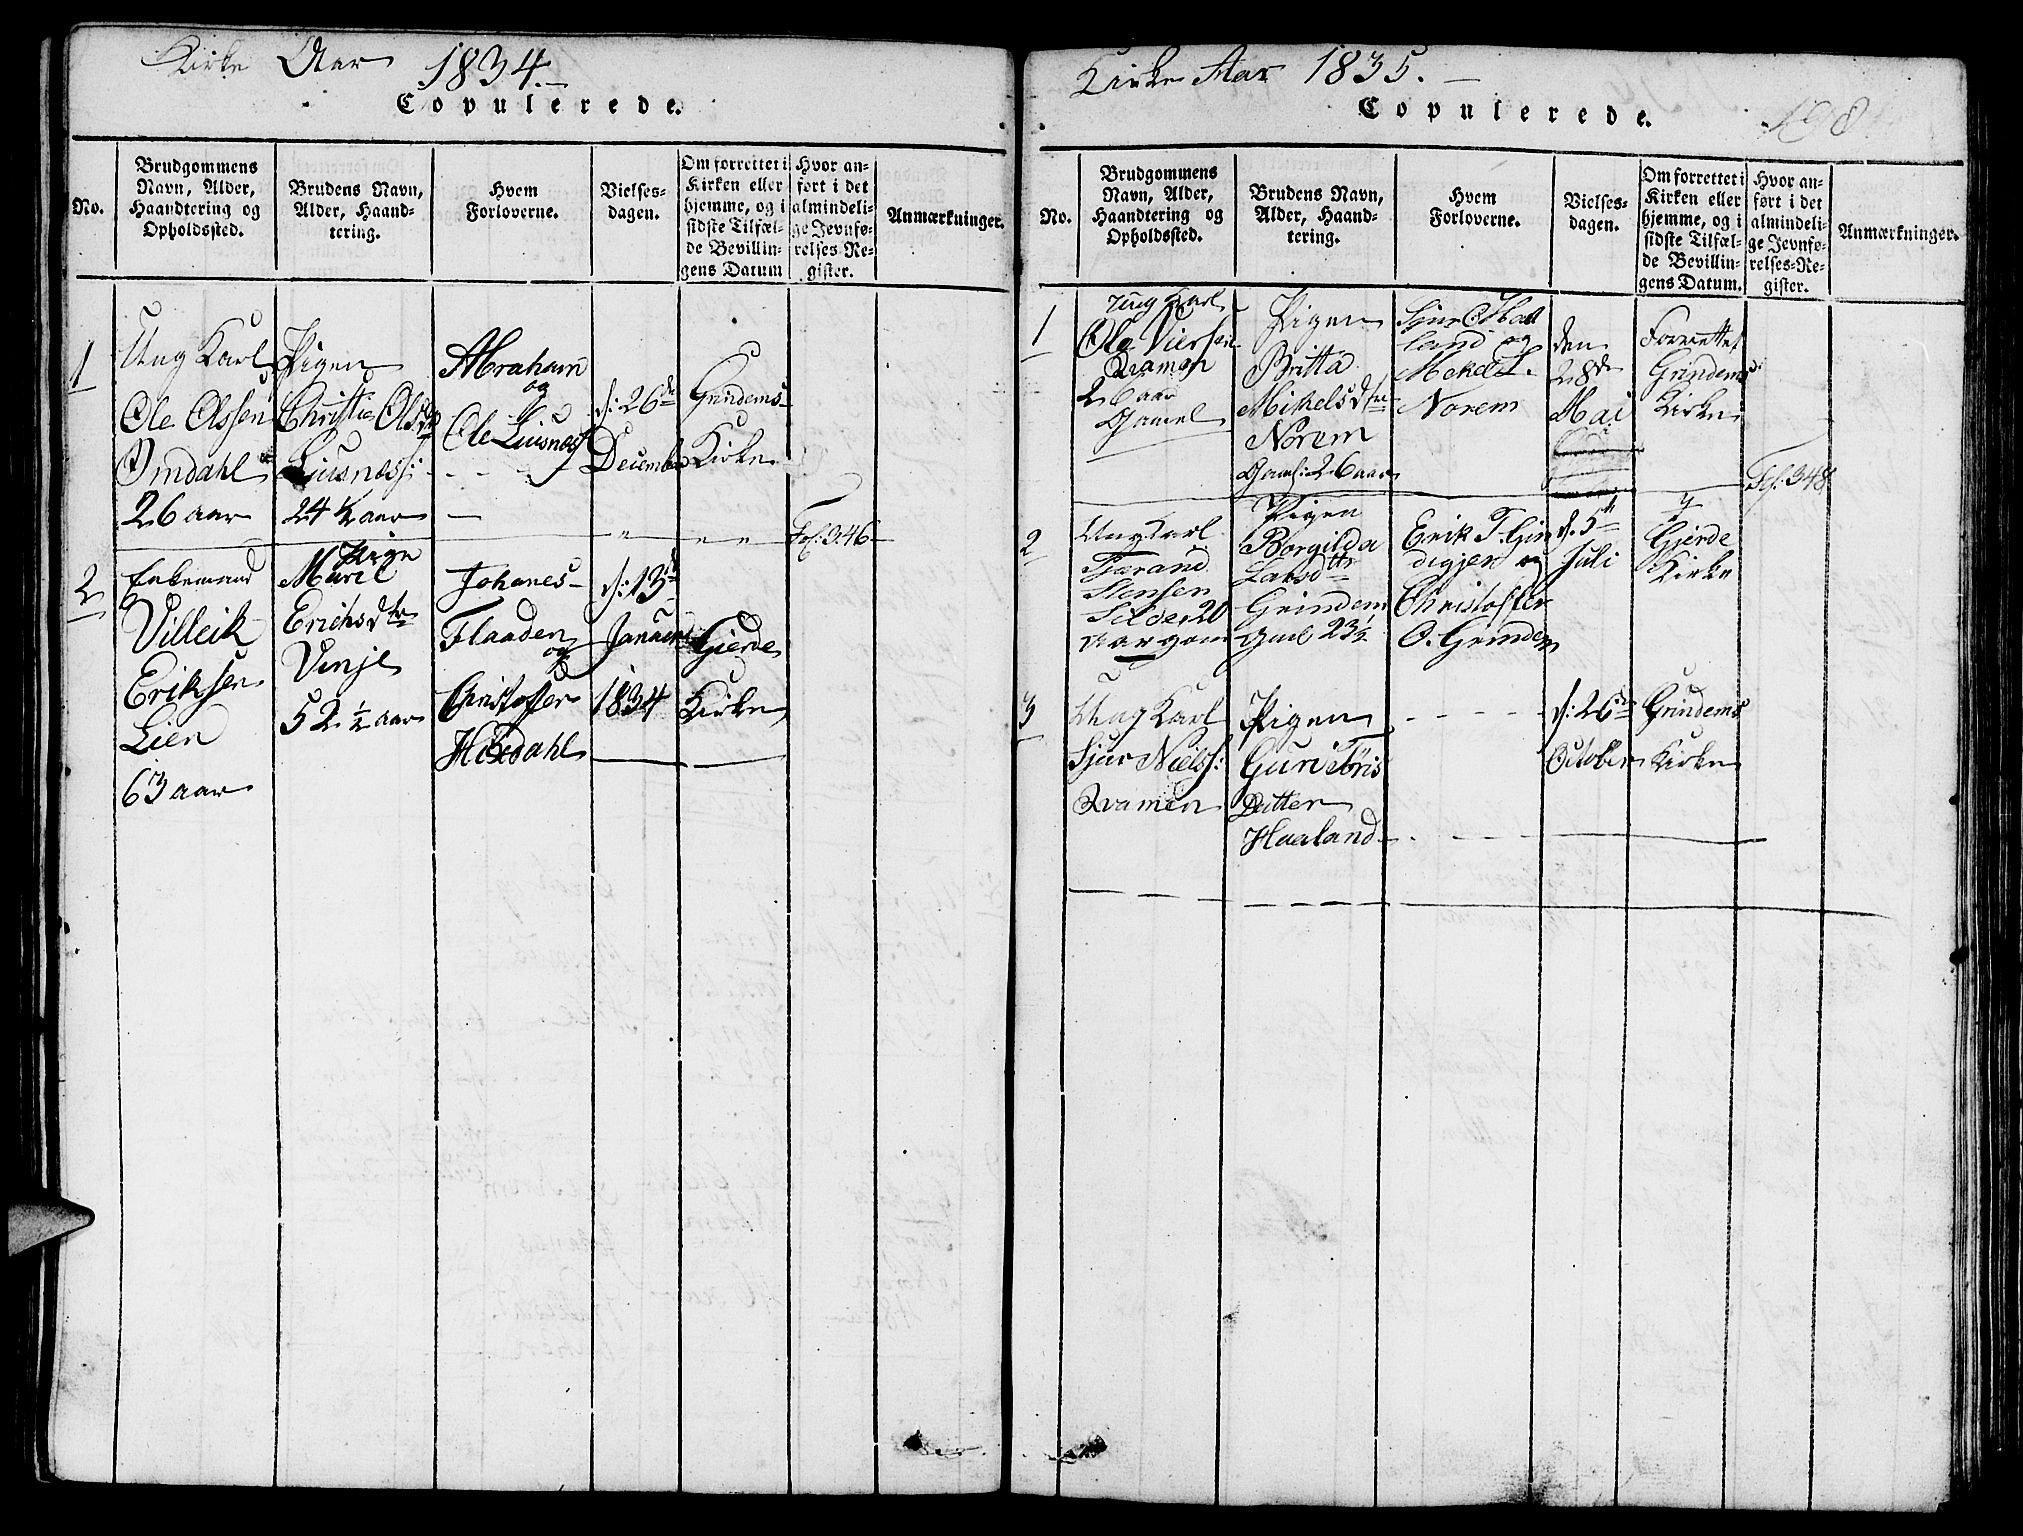 Kirke Aar 1834.
Copulerede.
No.
Brudgommens
Navn, Alder,
Haandtering og
Opholdssted.
Brudens Navn,
Alder, Haand-
tering.
Hvem
Forloverne.
Vielses-
dagen.
Om forrettet i
Kirken eller
hjemme, og i
sidste Tilfæl-
de Bevillin-
gens Datum
Hvor an-
ført i det
almindeli-
ge Jevnfø-
relses Re-
gister.
Anmærkninger.
1
Ung Karl
Ole Olssen
Omdahl
26 aar
Pigen
Christie Olsdtr
Liusnæss:
24 1/2 aar
Abraham
og
Ole Liusnæss
d: 26de
December
Grindems
Kirke
Fol. 346
2
Enkemand
Villeik
Eriksen
Lien
63 aar
Pige
Marie
Erichsdtr
Vinje
52 1/2 aar
Johanes
Flaaden
og
Christoffer
d: 13de
Januari
1834
Gjerde
Kirke
Kirke Aar 1835.
Copulerede.
198
No.
Brudgommens
Navn, Alder,
Haandtering og
Opholdssted.
Brudens Navn,
Alder, Haand-
tering.
Hvem
Forloverne.
Vielses-
dagen.
Om forrettet i
Kirken eller
hjemme, og i
sidste Tilfæl-
de Bevillin-
gens Datum.
Hvor an-
ført i det
almindeli-
ge Jevnfø-
relses-Re-
gister.
Anmærkninger.
1
Ung Karl
Ole
26 aar
Gamel
Pigen
Britta
Mikelsdtr
Norem
Gaml: 26 aar
land og
Norem
den
28de
Mai
Forrettet
Grindems
Kirke
Fol. 348
2
Ung Karl
Stensen
Selder 20
aar gam
Pigen
Borgilda
Larsdtr
Grindem
Gml 23 1/2
Erik T. Grin
digjer og
Christoffer
O. Grindem
d. 5te
Juli
Gjerde
Kirke
3
Ung Karl
Sjur Nielss:
Qvamen
Pigen
Guri Tøris
Datter
Haaland
d: 26de
October
Grindems
Kirke